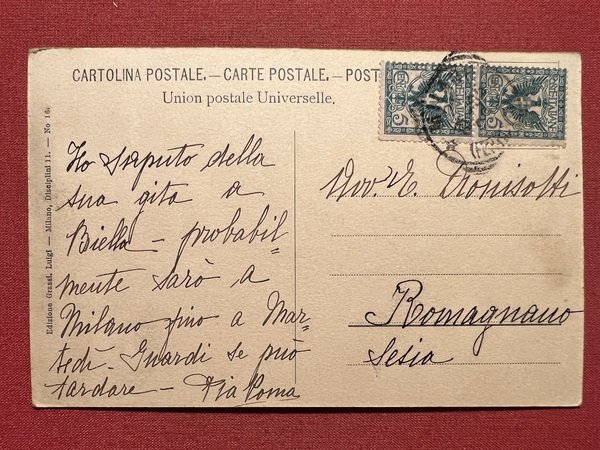 CARTOLINA POSTALE. — CARTE POSTALE. — POST
Union postale Universelle.
Edizione Grassi, Luigi — Milano, Disciplini 11. — No 16.
Ho saputo della
sua gita a
Biella – probabil-
mente sarò a
Milano fino a Mar-
tedì. Guardi se può
tardare –
Avv. E.
Romagnano
Sesia
5
5